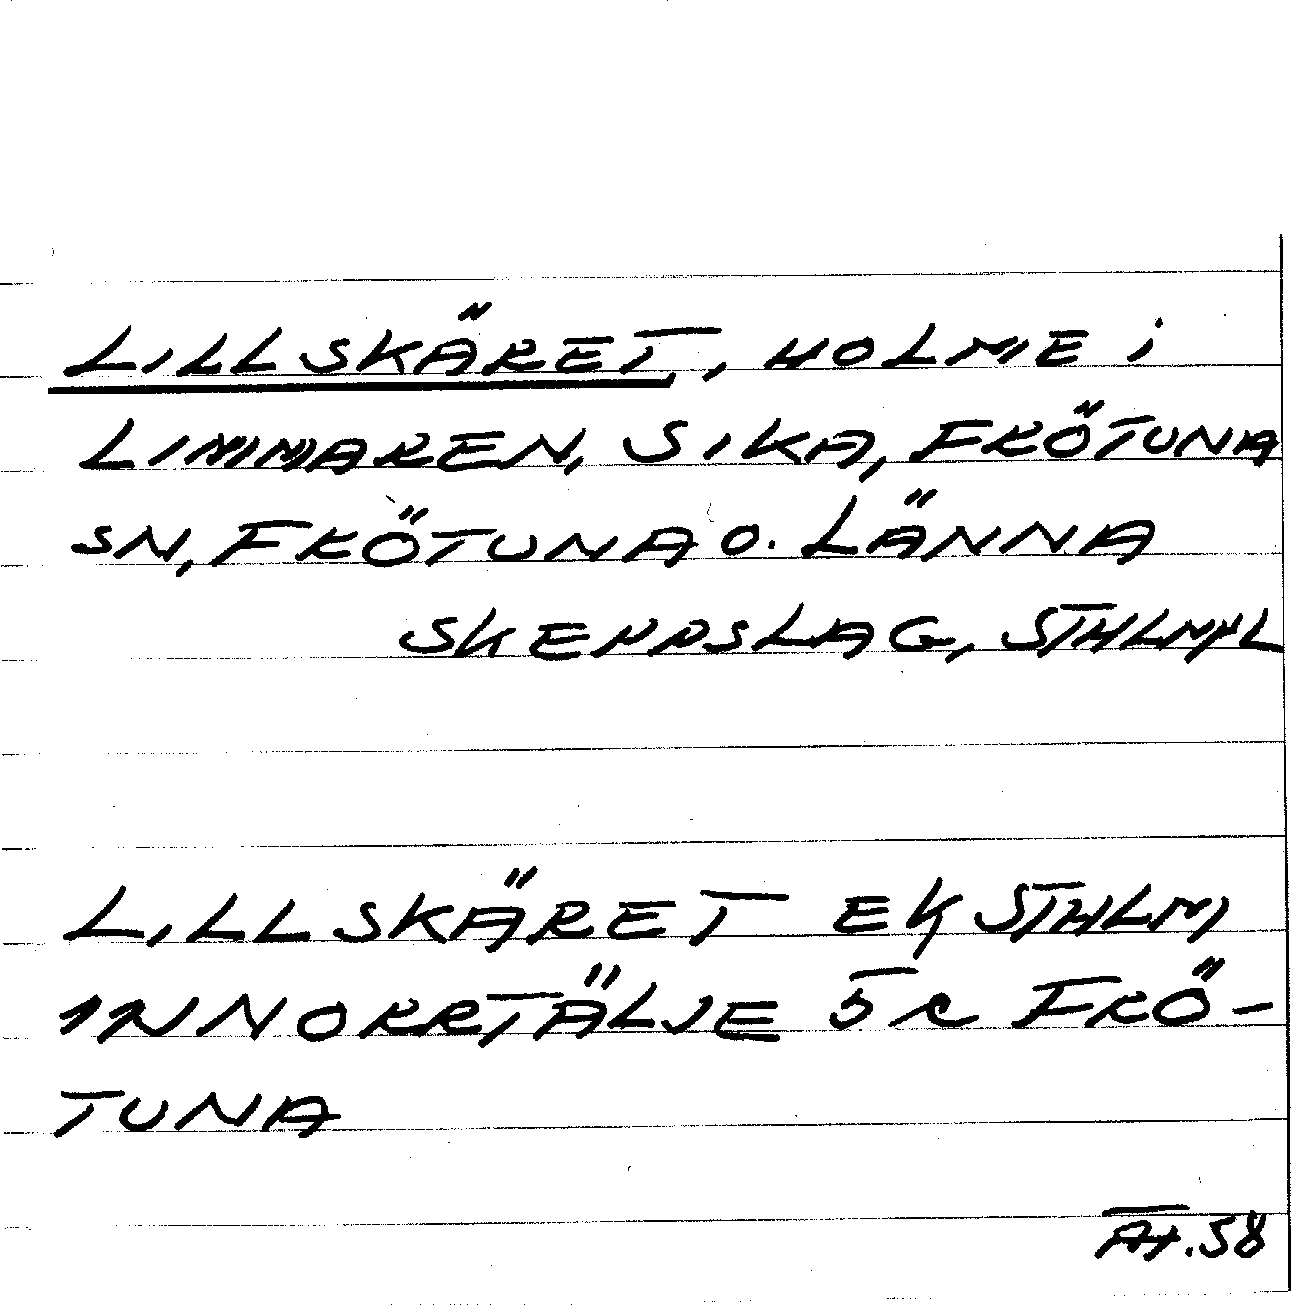 LILLSKÄRET, HOLME i
LIMMAREN, SIKA, FRÖTUNA
SN, FRÖTUNA O. LÄNNA
SKEPPSLAG, STHLMS L
LILLSKÄRET EK STHLM
11N NORRTÄLJE 5 c FRÖ-
TUNA
58